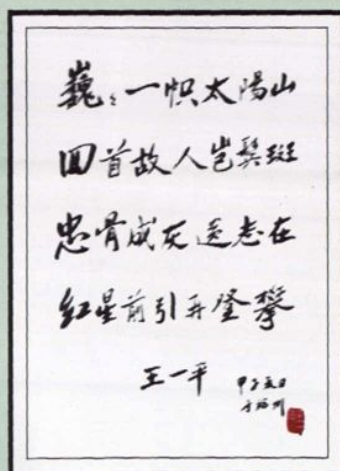 巍々一帜太陽山
回首故人岂鬓斑
忠骨成灰遗志在
红星前引再登攀
王一平
甲子